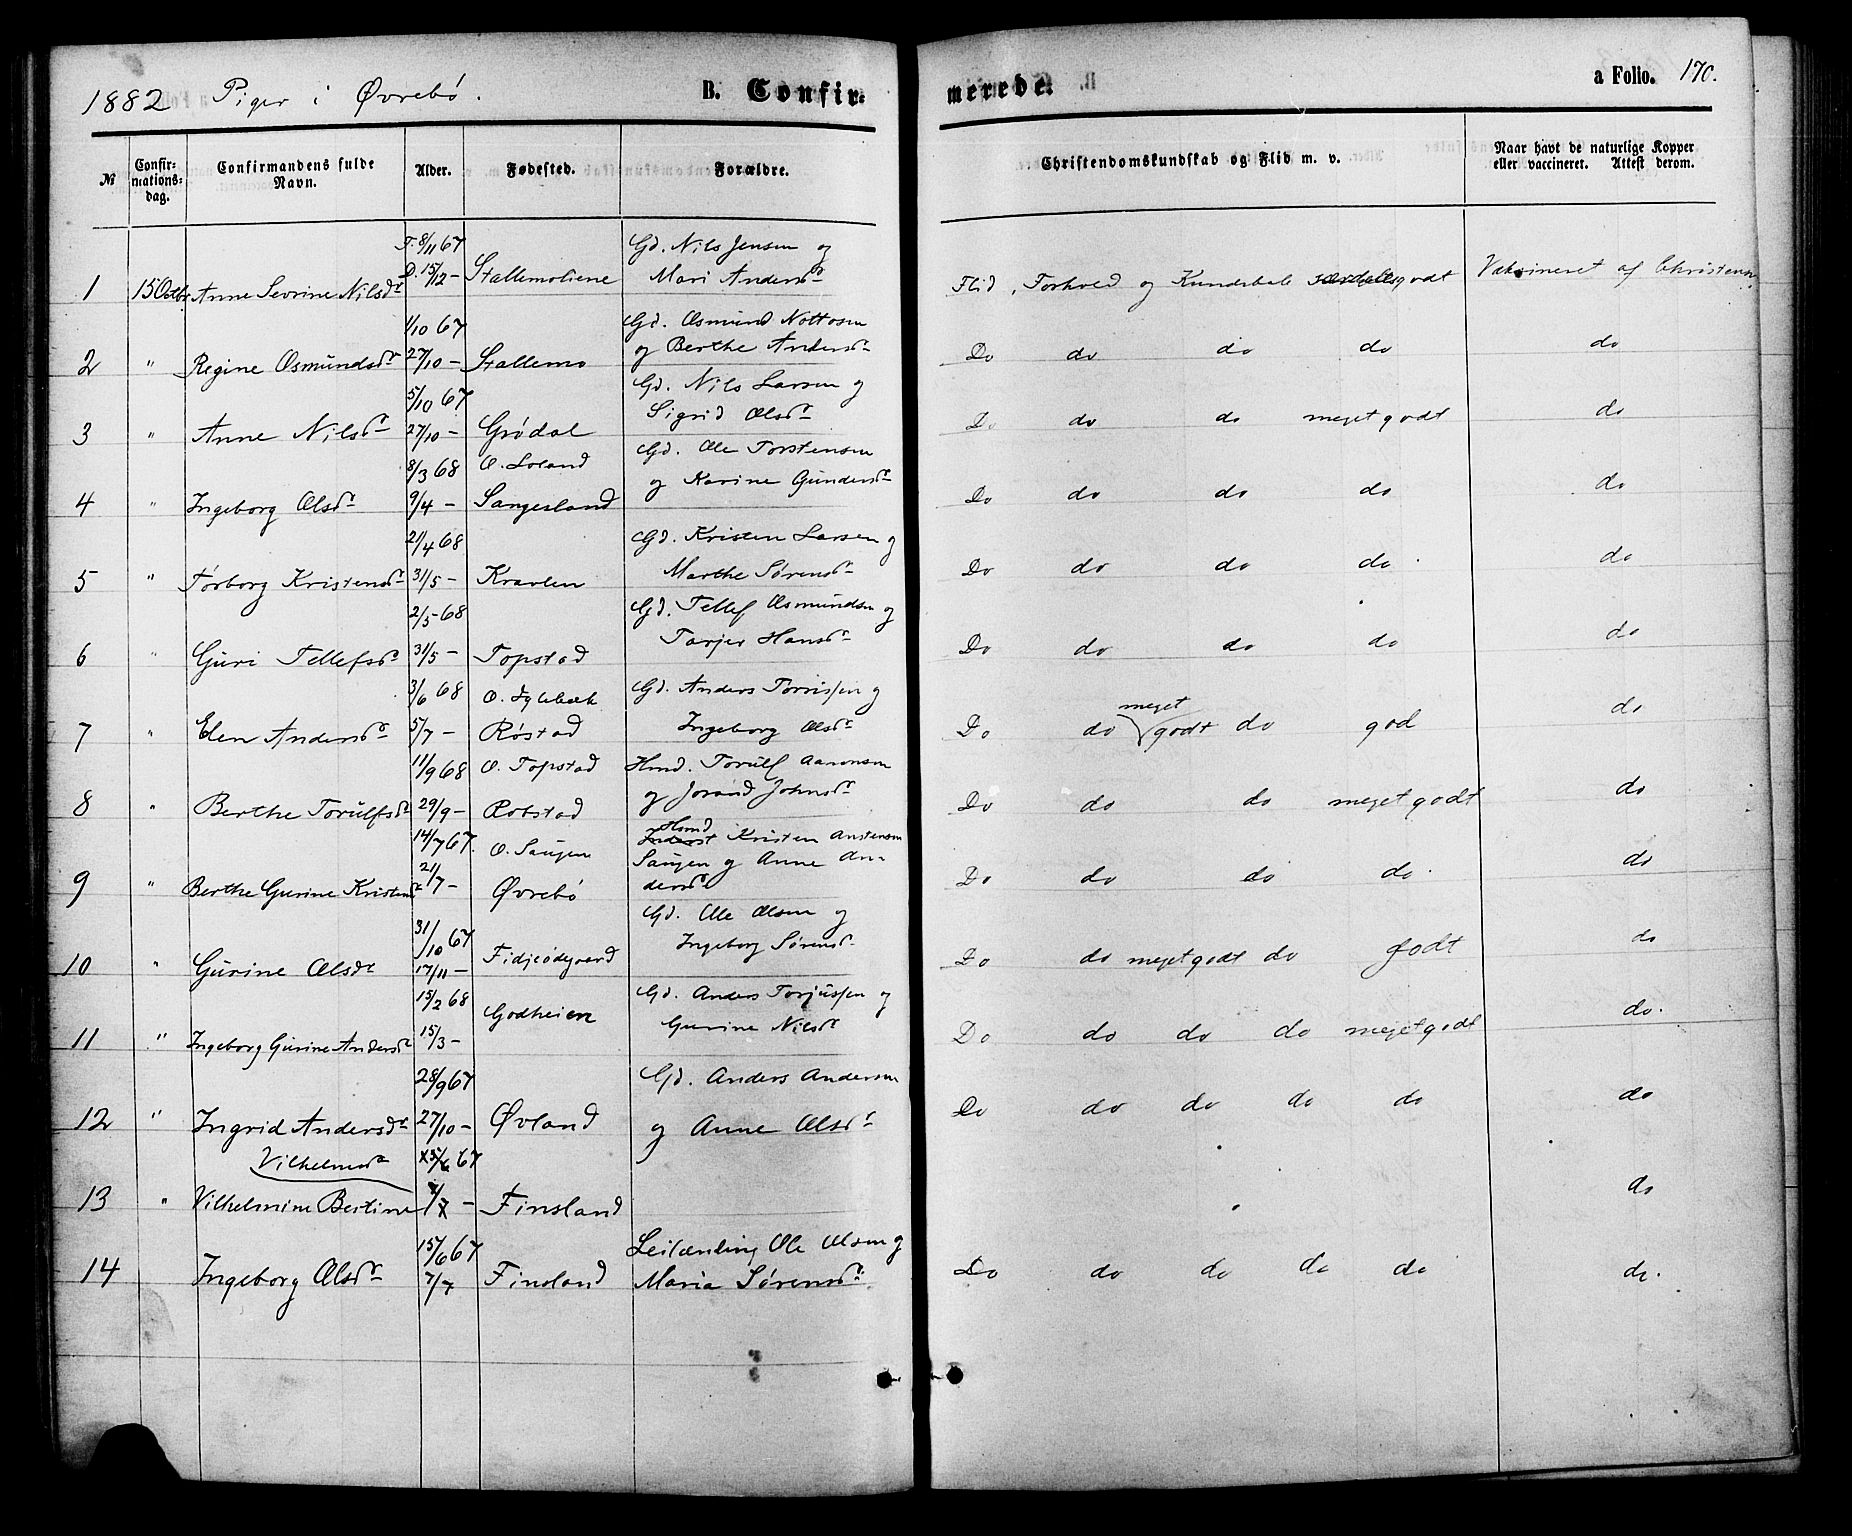 1882 Piger i Øvrebø. B. Confir-
merede. a Folio. 170.
№ Confir-mations-dag. Confirmandens fulde Navn. Alder. Fødested. Forældre. Christendomskundskab og Flid m. v. Naar havt de naturlige Kopper eller vaccineret. Attest derom.
F. 8/11 67 Gd. Nils Jensen og
1 15 Octbr Anne Sevrine Nilsdr D. 15/12 – Stallemoliene Mari Andersdr Flid, Forhold og Kundskab særdelesgodt Vaksineret af Christensen
1/10 67 Gd. Osmund Nottosen
2 " Regine Osmundsdr 27/10 – Stallemo og Berthe Andersdr Do do do do do
5/10 67 Gd. Nils Larsen og
3 " Anne Nilsdr 27/10 – Grødal Sigrid Olsdr Do do do megetgodt do
8/3 68 O. Loland Gd. Ole Torstensen
4 " Ingeborg Olsdr 9/4 – Sangesland og Karine Gundersdr Do do do do do
21/4 68 Gd. Kristen Larsen og
5 " Torborg Kristensdr 31/5 – Kravlen Marthe Sørensdr Do do do do do
2/5 – 68 Gd. Tellef Osmundsen og
6 " Guri Tellefsdr 31/5 – Topstad Tarjer Hansdr Do do do do do
3/6 68 O. Fylebæk Gd. Anders Torrissen og
7 " Elen Andersdr 5/7 – Røstad Ingeborg Olsdr Do do meget godt do god do
11/9 68 O. Topstad Hmd. Torulf Aaronsen
8 " Berthe Torulfsdr 29/9 – Robstad og Jorand Johnsdr Do do do megetgodt do
14/7 67. O. Saugen Hmd Inderst Kristen Anstensen
Saugen og Anne An-
9 " Berthe Gurine Kristensdr 21/7 – Øvrebø dersdr Do do do do. do
31/10 67 Gd. Ole Olsen og
10 " Gurine Olsdr 17/11 – Fidjeødegaard Ingeborg Sørensdr Do do megetgodt do godt do
15/2 68 Godheien Gd. Anders Torjussen og
11 " Ingeborg Gurine Andersdr 15/3 – Gurine Nilsdr Do do do do megetgodt do.
28/9 67 Gd. Anders Andersen
12 " Ingrid Andersdr 27/10 – Øvland og Anne Olsdr Do do do do do do
Vilhelmsdr 67
13 " Vilhelmine Bertine – Finsland do
15/6 67 Leilænding Ole Olsen og
14 Ingeborg Olsdr 7/7 Finsland Maria Sørensdr. Do do do do do do.